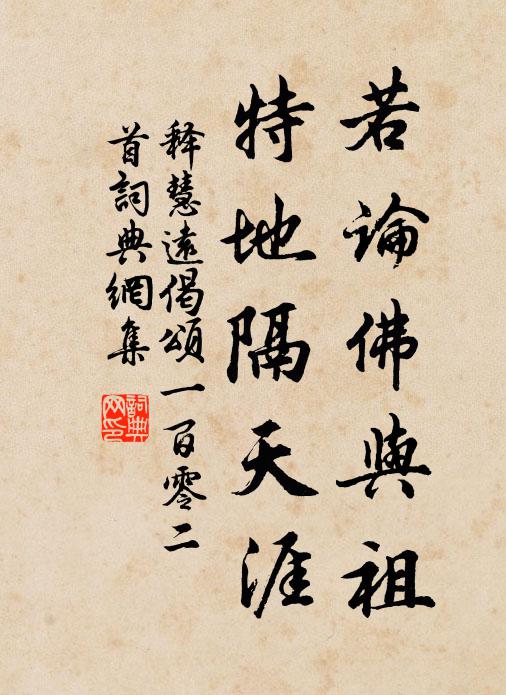 若論佛與祖
特地隔天涯
释慧遠偈頌一百零二
首詞典網集
詞典
网印